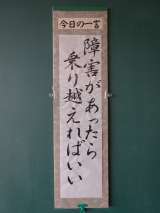 今日の一言
障害があったら
乗り越えればいい